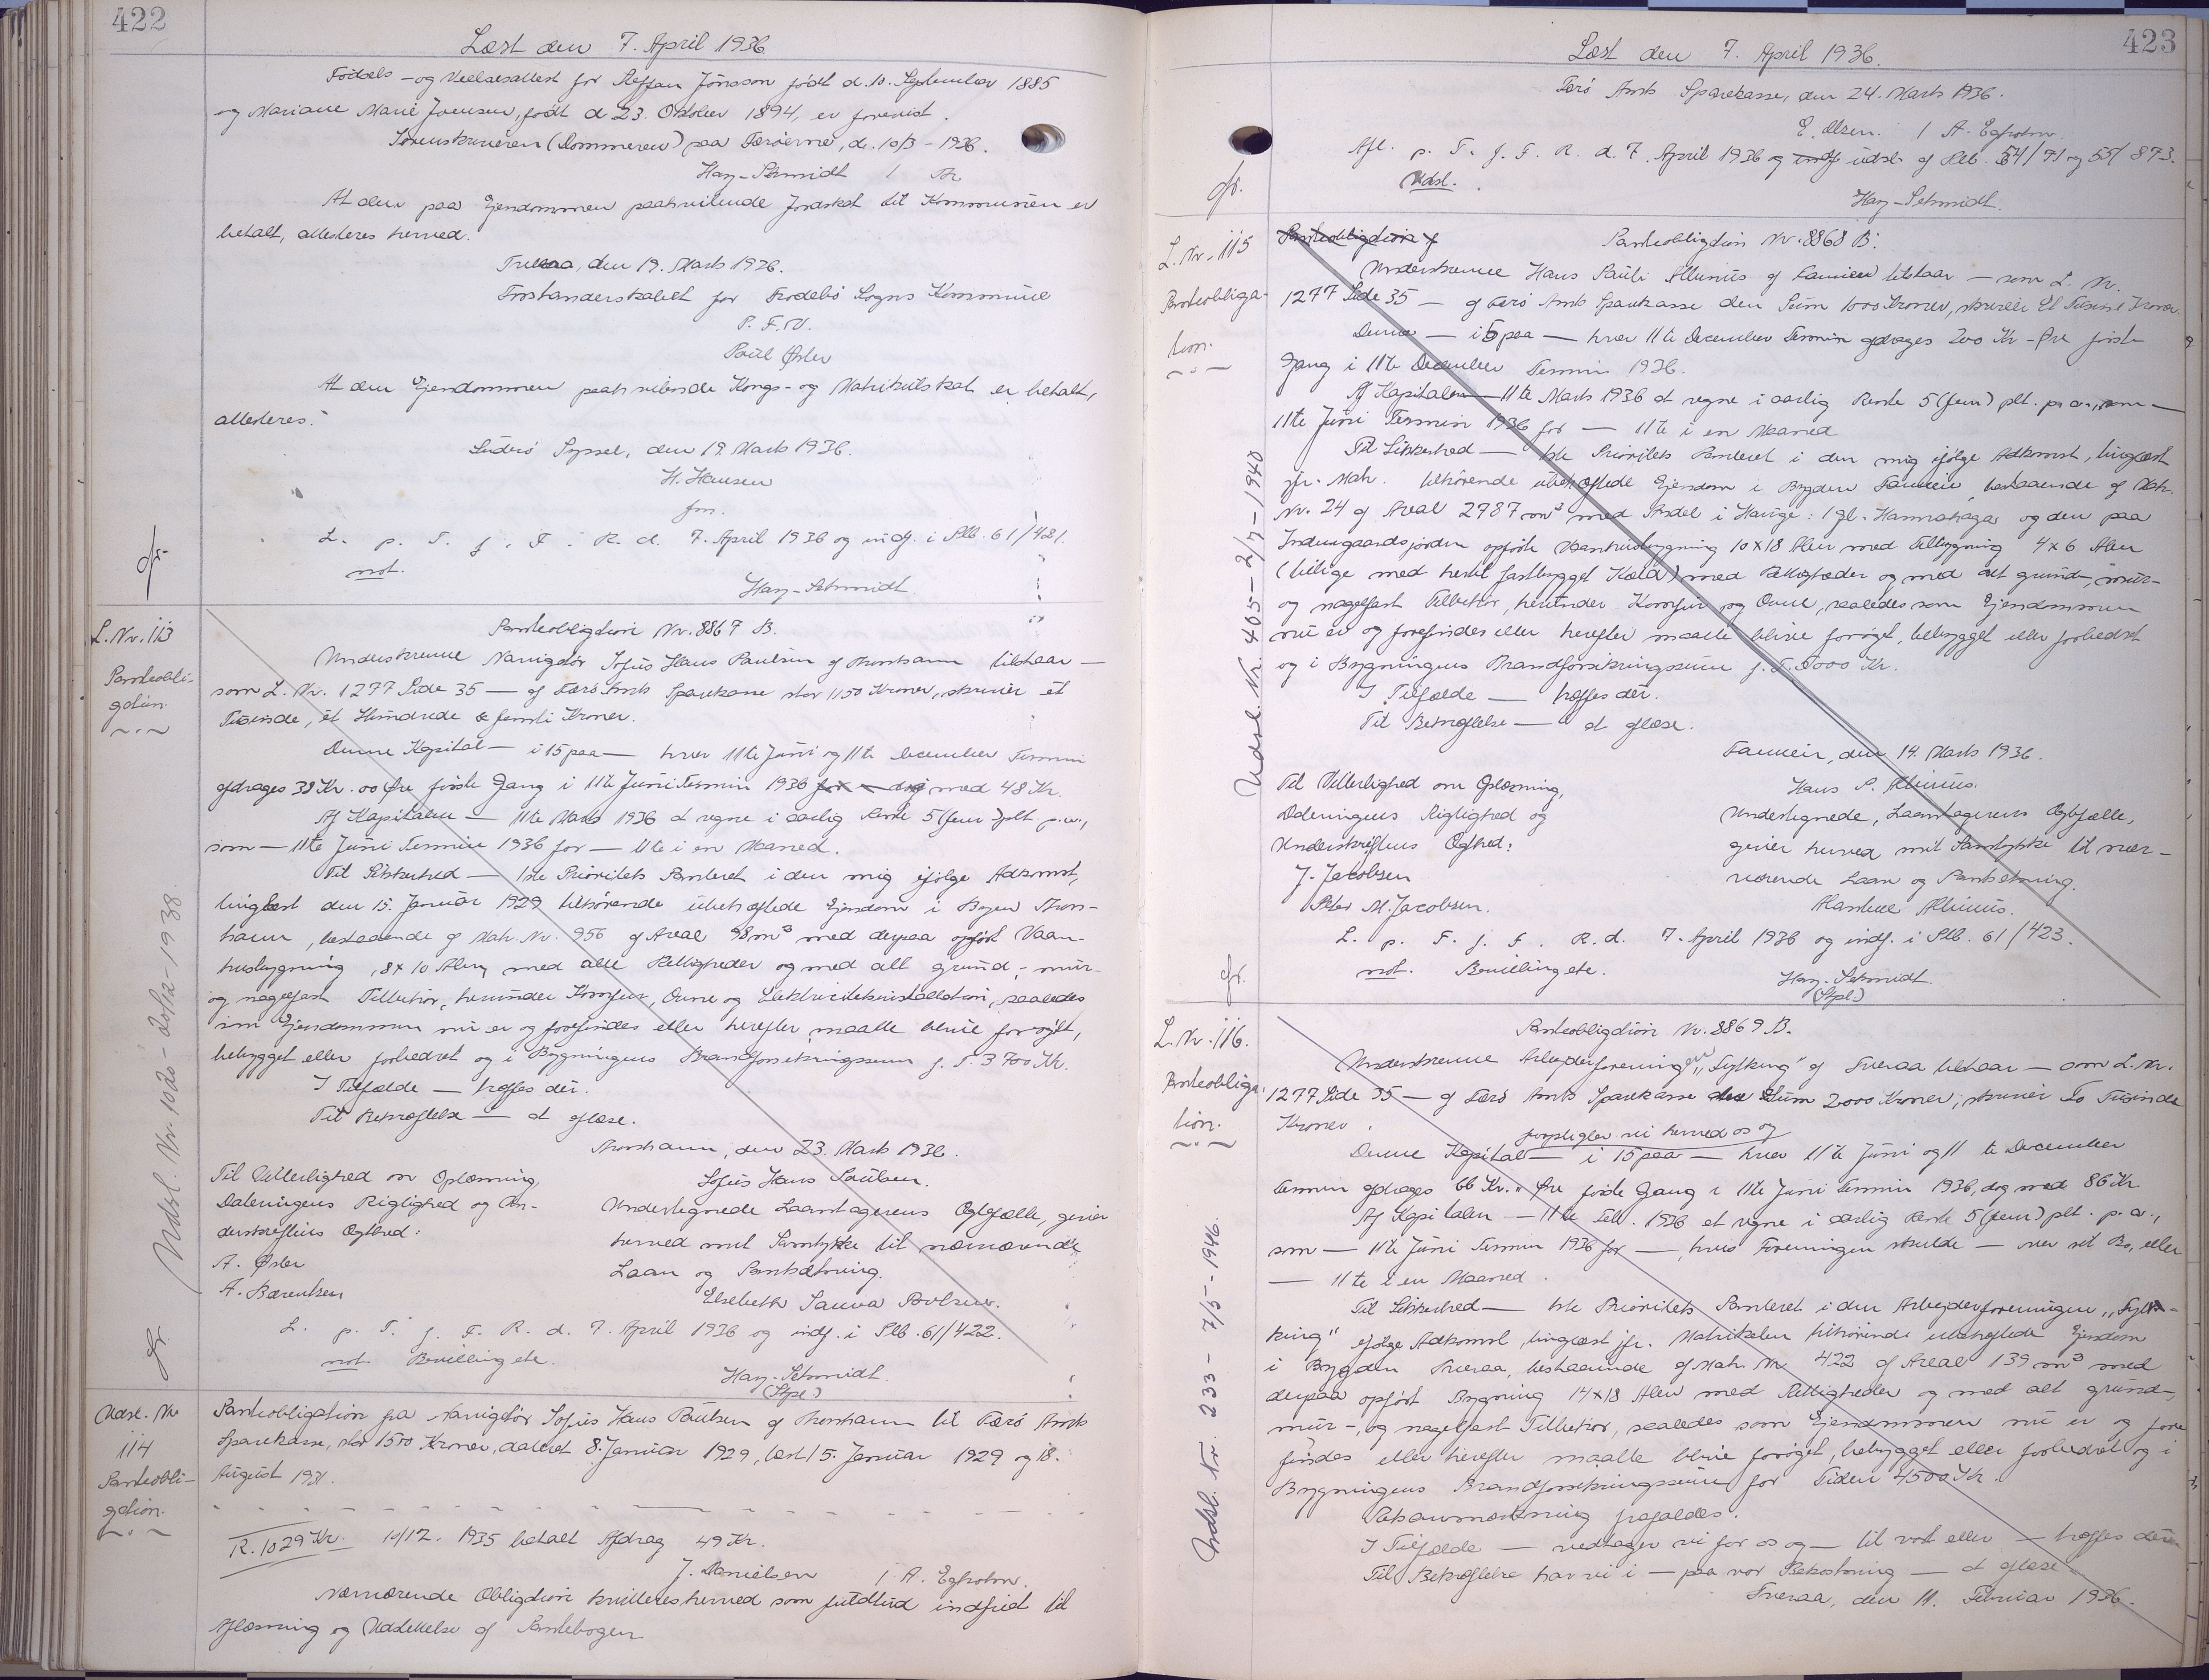 422
Læst den 7. April 1936
Födsels- og Vielsesattest for Steffan Jönsson födt d. 10. September 1885
og Mariane Marie Joensen, födt d 23. Oktober 1894, er forevist.
Sorenskriveren (Dommeren) paa Færöerne, d. 10/3 - 1936.
Hary-Schmidt /
At den paa Ejendommen paahvilende Jordskat til Kommunen er
betalt, attesteres herved.
Tveraa, den 19. Marts 1936.
Forstanderskabet for Frodebö Sogns Kommune
P. F. V.
Poül Öster
At den Ejendommen paahvilende Kongs- og Matrikülskat er betalt,
attesteres.
Süderö Syssel, den 19. Marts 1936.
H. Hansen
fm.
L. p. T. f. F. R. d. 7. April 1936 og indf. i Plb. 61/421.
not.
Hary-Schmidt.
cfr
L. Nr. 113
Panteobli-
gation.
Panteobligation Nr. 8867 B.
Underskrevne Navigatör Sofüs Hans Paulsen af Thorshavn tilstaar —
som L. Nr. 1277 Side 35 — af Færö Amts Sparekasse stor 1150 Kroner, skriver ét
Tüsinde, ét Hündrede & femti Kroner.
Denne Kapital — i 15 paa — hver 11te Jüni og 11te December Termin
afdrages 38 Kr. 00 Öre förste Gang i 11te Jüni Termin 1936 for — dog med 48 Kr.
Af Kapitalen — 11te Marts 1936 at regne i aarlig Rente 5 (fem) pCt. p.a.,
som — 11te Jüni Termin 1936 for — 11te i en Maaned.
Til Sikkerhed — 1ste Prioritets Panteret i den mig ifölge Adkomst,
tinglæst den 15. Janüar 1929 tilhörende übehæftede Ejendom i Byen Thors-
havn, bestaaende af Matr. Nr. 956 af Areal 98 m² med derpaa opfört Vaan-
husbygning, 8 x 10 Alen, med alle Rettigheder og med alt gründ-, mür-
og nagelfast Tilbehör, heründer Komfür, Ovne og Elektricitetsinstallation, saaledes
som Ejendommen nü er og forefindes eller herefter maatte blive forögt,
bebygget eller forbedret og i Bygningens Brandforsikringssüm f. T. 3700 Kr.
I Tilfælde — træffes dér.
Til Bekræftelse — at aflæse.
Thorshavn, den 23. Marts 1936.
Til Vitterlighed om Oplæsning,
Dateringens Rigtighed og Un-
derskriftens Ægthed:
A. Öster
A. Bærentsen
Sofüs Hans Paülsen.
Undertegnede Laantagerens Ægtefælle, giver
herved mit Samtykke til nærværende
Laan og Pantsætning.
Elsebeth Sanna Poulsen.
L. p. T. f. F. R. d. 7. April 1936 og indf. i Plb. 61/422.
not. Bevilling etc.
Hary-Schmidt.
(Stpl.)
cfr.
Udsl. Nr. 10120 - 20/12 - 1938.
Udsl. Nr.
114
Panteobli-
gation.
Panteobligation fra Navigatör Sofüs Hans Paülsen af Thorshavn til Færö Amts
Sparekasse, stor 1500 Kroner, dateret 8. Janüar 1929, læst 15. Janüar 1929 og 18.
Aügüst 1931.
R. 1029 Kr. 10/12. 1935 betalt Afdrag 49 Kr.
J. Danielsen / A. Egholm.
Nærværende Obligation kvitteres herved som füldtüd indfriet til
Aflæsning og Udslettelse af Pantebogen.
423
Læst den 7. April 1936.
Færö Amts Sparekasse, den 24. Marts 1936.
E. Olsen. / A. Egholm
Afl. p. T. f. F. R. d. 7. April 1936 og indf. üdsl. af Plb. 54/71 og 55/873.
Udsl.
Hary-Schmidt.
cfr.
L. Nr. 115
Panteobliga-
tion.
Panteobligation f
Panteobligation Nr. 8868 B.
Underskrevne Hans Pauli Albinüs af Famien tilstaar — som L. Nr.
1277 Side 35 — af Færö Amts Sparekasse den Süm 1000 Kroner, skriver Et Tüsind Kroner.
Denne — i 5 paa — hver 11te December Termin afdrages 200 Kr - Öre förste
Gang i 11te December Termin 1936.
Af Kapitalen — 11te Marts 1936 at regne i aarlig Rente 5 (fem) pCt. p. a., som —
11te Jüni Termin 1936 for — 11te i en Maaned
Til Sikkerhed — 1ste Prioritets Panteret i den mig ifölge Adkomst, tinglæst
jfr. Matr. tilhörende übehæftede Ejendom i Bygden Famien, bestaaende af Matr.
Nr. 24 af Areal 2787 m² med Andel i Hauge: 1 gl. Hamrahaga og den paa
Indengaardsjorden opförte Vaanhüsbygning 10 x 18 Alen med Tilbygning 4 x 6 Alen
(tillige med hertil fastbygget Kæld) med Rettigheder og med alt gründ-, mür-
og nagelfast Tilbehör, heründer Komfür og Ovne, saaledes som Ejendommen
nü er og forefindes eller herefter maatte blive foröget, bebygget eller forbedret
og i Bygningens Brandforsikringssüm f. T. 5000 Kr.
I Tilfælde — træffes dér.
Til Bekræftelse — at aflæse.
Famien, den 14. Marts 1936.
Til Vitterlighed om Oplæsning,
Dateringens Rigtighed og
Underskriftens Ægthed:
J. Jacobsen
Peter M. Jacobsen.
Hans P. Albinüs.
Undertegnede, Laantagerens Ægtefælle,
giver herved mit Samtykke til nær-
værende Laan og Pantsætning.
Albinüs.
L. p. T. f. F. R. d. 7. April 1936 og indf. i Plb. 61/423.
not. Bevilling etc.
Hary-Schmidt.
(Stpl.)
cfr.
Udsl. Nr. 405 - 2/7 - 1940
L. Nr. 116.
Panteobliga-
tion.
Panteobligation Nr. 8869 B.
Underskrevne Arbejderforeningen "Fylking" af Tveraa tilstaar — som L. Nr.
1277 Side 35 — af Færö Amts Sparekasse den Süm 2000 Kroner, skriver To Tüsinde
Kroner.
forpligter vi herved os og
Denne Kapital — i 15 paa — hver 11te Jüni og 11te December
Termin afdrages 66 Kr. " Öre förste Gang i 11te Jüni Termin 1936, dog med 86 Kr.
Af Kapitalen — 11te Feb. 1936 at regne i aarlig Rente 5 (fem) pCt. p. a.,
som — 11te Jüni Termin 1936 for —, hvis Foreningen skulde — over sit Bo, eller
— 11te i en Maaned.
Til Sikkerhed — 1ste Prioritets Panteret i den Arbejderforeningen "Fyl-
king" ifölge Adkomst, tinglæst jfr. Matrikelen tilhörende übehæftede Ejendom
i Bygden Tveraa, bestaaende af Matr. Nr. 422 af Areal 139 m² med
derpaa opfört Bygning 14 x 18 Alen med Rettigheder og med alt gründ-,
mür-, og nagelfast Tilbehör, saaledes som Ejendommen nü er og fore
findes eller herefter maatte blive foröget, bebygget eller forbedret og i
Bygningens Brandforsikringssüm for Tiden 4500 Kr.
frafaldes.
I Tilfælde — vedtager vi for os og — til vort eller — træffes dér
Til Bekræftelse har vi i — paa vor Bekostning — at aflæse
Tveraa, den 11. Februar 1936.
Udsl. Nr. 233 - 7/5 - 1946.